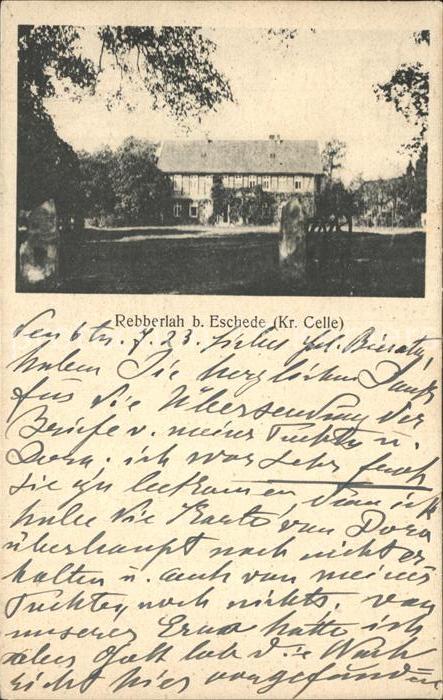 Rebberlah b. Eschede (Kr. Celle)
Den 6ten. 7. 23. Liebes frl.
haben Sie herzlichen Dank
für die Übersendung der
Briefe v. meiner u.
Dora. ich war sehr froh
sie zu bekommen, denn ich
habe die Karte von Dora
überhaupt noch nicht er
halten u. auch von meiner
noch nichts. von
unserer Erna hatte ich
aber Gott lob die Nach
richt hier vorgefunden